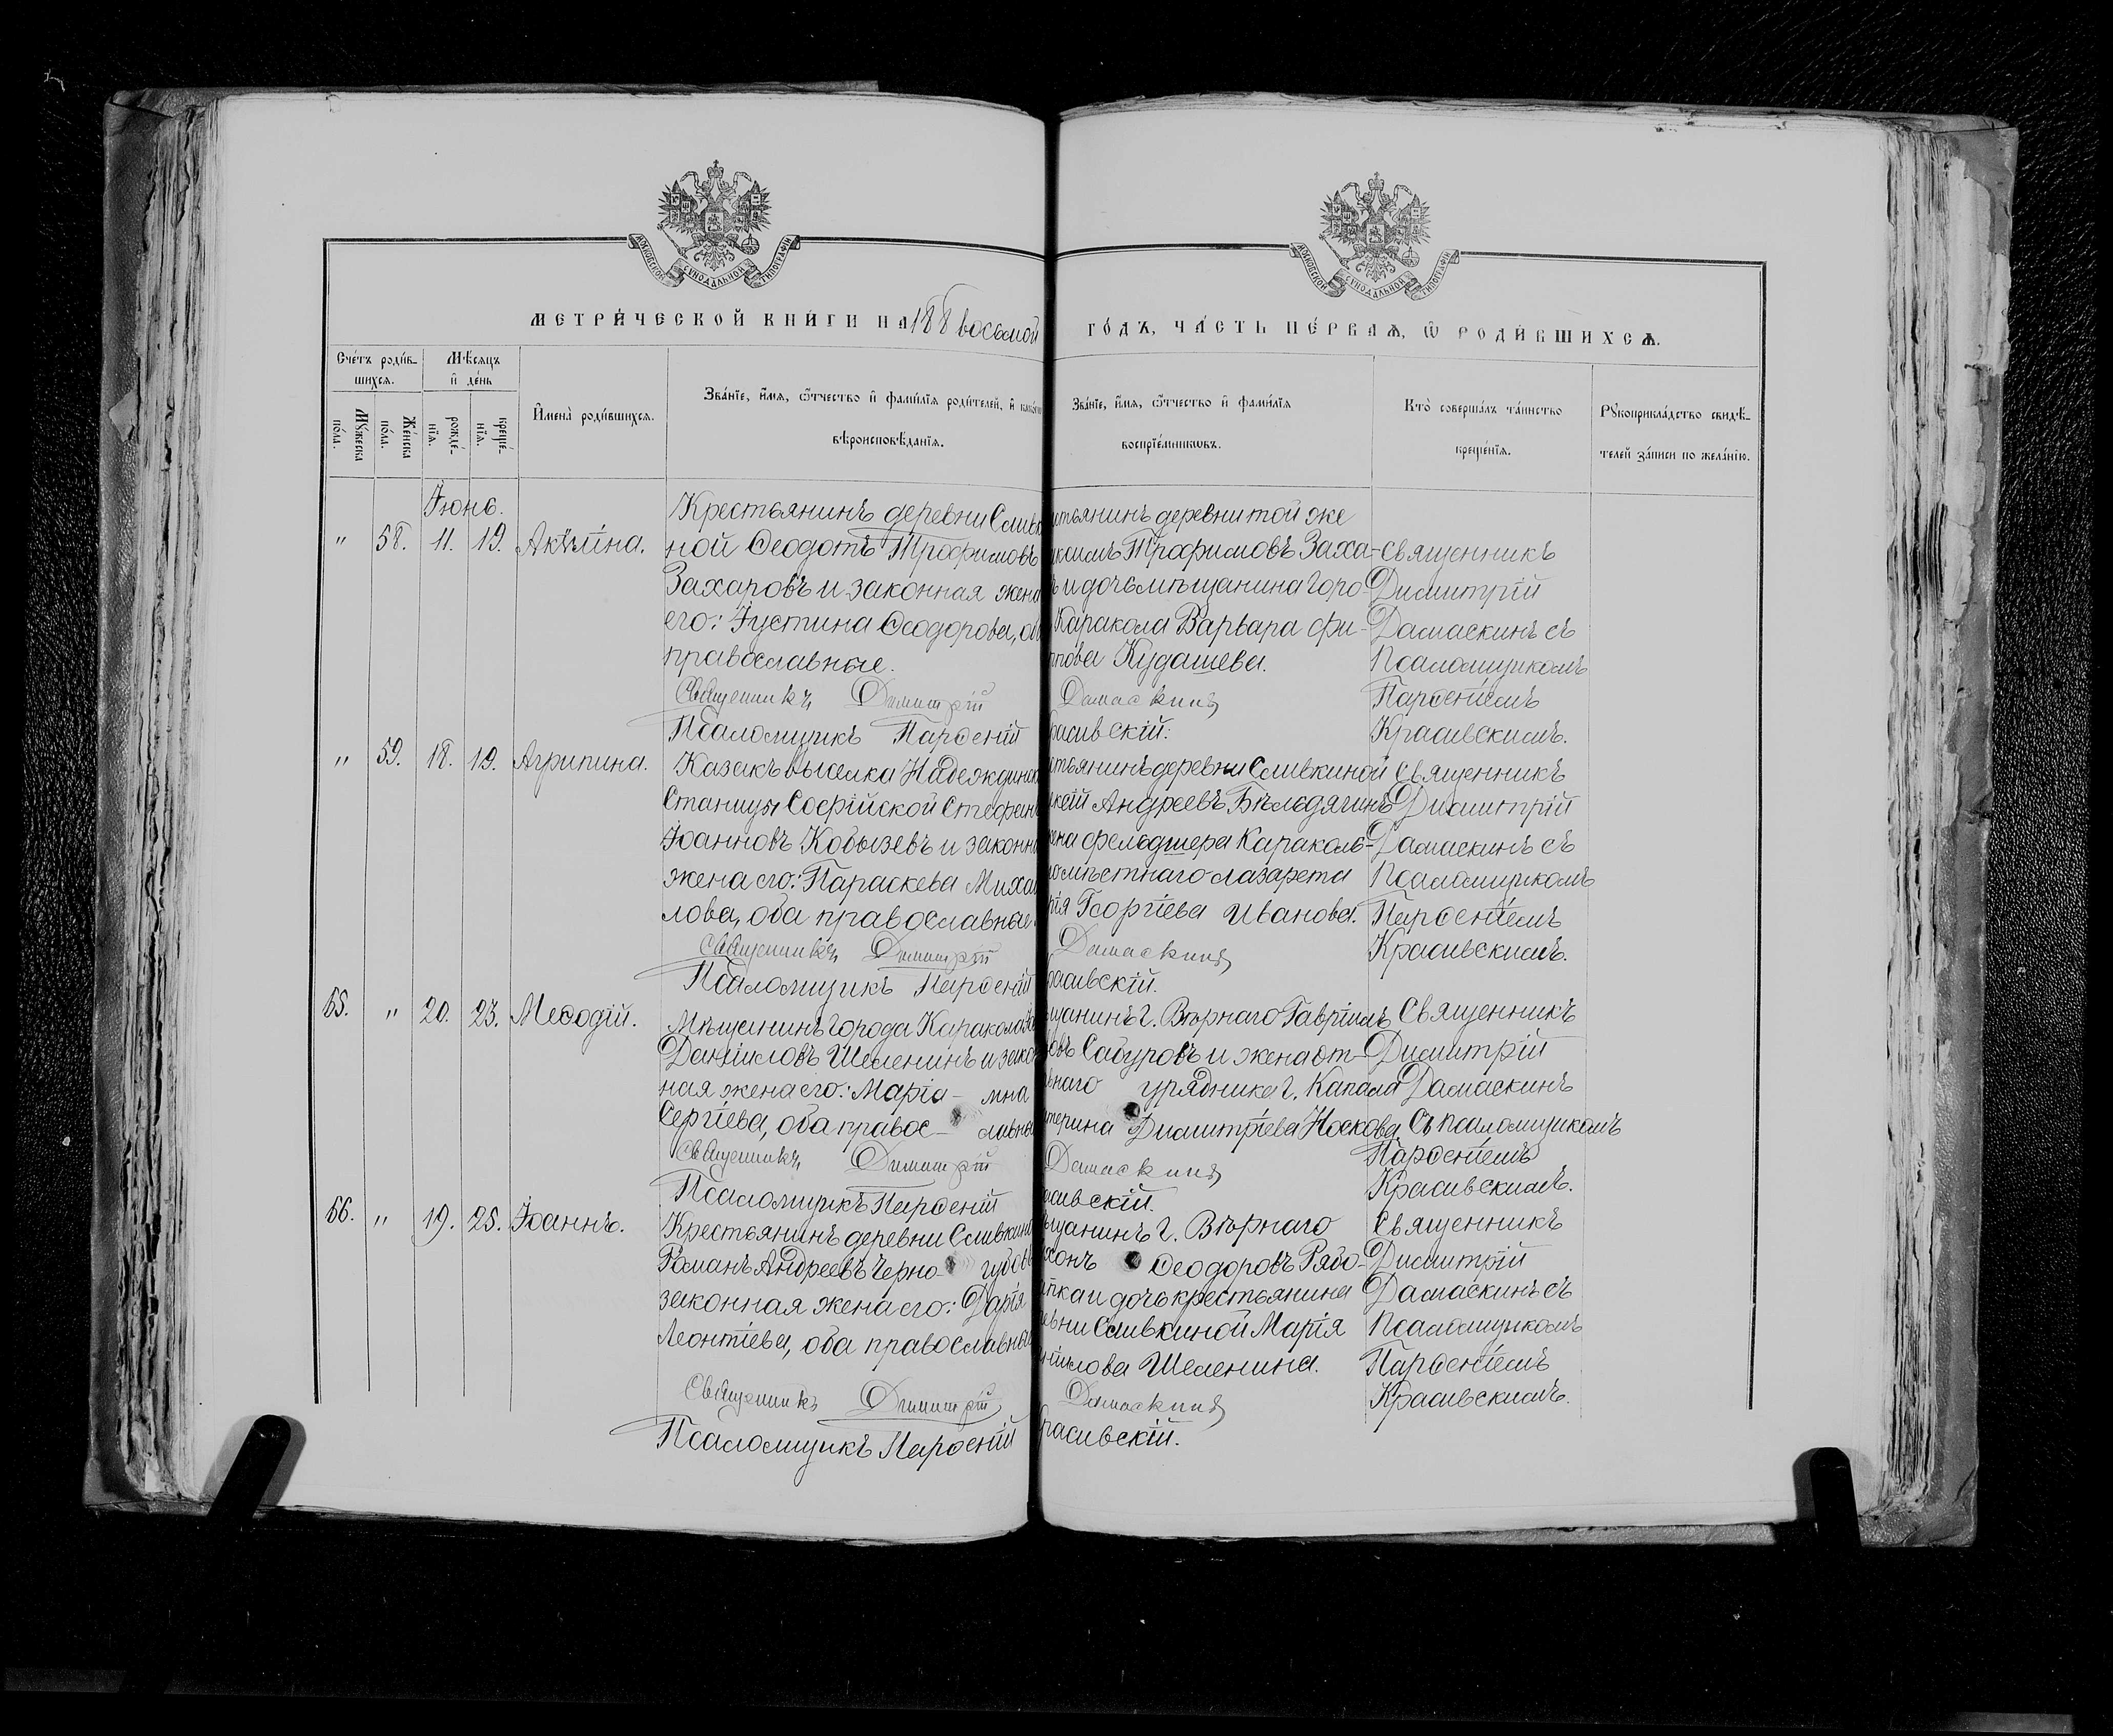 МОСКОВСКОЙ СѴНОДАЛЬНОЙ ТИПОГРАФІИ
МОСКОВСКОЙ СѴНОДАЛЬНОЙ ТИПОГРАФІИ
МЕТРИ́ЧЕСКОЙ КНИ́ГИ НА 188 восьмой
ГО́ДЪ, ЧА́СТЬ ПЕ́РВАѦ, Ѿ РОДИ́ВШИХСѦ.
Сче́тъ роди́в-
шихсѧ.
Мѣ́сѧцъ
и҆ де́нь
Мꙋ́жеска
по́ла.
Же́нска
по́ла.
рожде́-
нїѧ.
креще́-
нїѧ.
И҆мена̀ роди́вшихсѧ.
Зва́нїе, и҆́мѧ, ѻ҆́тчество и҆ фами́лїѧ роди́телей, и҆ како́гѡ
вѣроисповѣ́данїѧ.
Зва́нїе, и҆́мѧ, ѻ҆́тчество и҆ фами́лїѧ
воспрїе́мникѡвъ.
Кто̀ соверша́лъ та́инство
креще́нїѧ.
Рꙋкоприкла́дство свидѣ́-
телей за́писи по жела́нїю.
Іюнь.
" 58. 11. 19. Акѵлина.
Крестьянинъ деревни Сливки
ной Ѳеодотъ Трофимовъ
Захаровъ и законная жена
его: Іустина Ѳеодорова, оба
православные.
стьянинъ деревни той же
ксимъ Трофимовъ Заха-
ъ и дочь мѣщанина горо-
Каракола Варвара Фи-
ппова Кудашева.
Священникъ
Димитрій
Дамаскинъ съ
Псаломщикомъ
Парѳеніемъ
Красивскимъ.
Священникъ Димитрій Дамаскинъ
Псаломщикъ Парѳеній расивскій.
" 59. 18. 19. Агрипина.
Казакъ выселка Надеждинск
Станицы Софійской Стефанъ
Іоанновъ Кобызевъ и законна
жена его: Параскева Михай
лова, оба православные.
стьянинъ деревни Сливкиной
ксій Андреевъ Бѣльдягинъ
ена фельдшера Караколь-
омѣстнаго лазарета
рія Георгіева Иванова.
Священникъ
Димитрій
Дамаскинъ съ
Псаломщикомъ
Парѳеніемъ
Красивскимъ.
Священникъ Димитрій Дамаскинъ
Псаломщикъ Парѳеній расивскій.
65. " 20. 23. Меѳодій.
Мѣщанинъ города Каракола
Даніиловъ Шеленинъ и закон
ная жена его: Маріа- мна
Сергіева, оба правос- лавные
щанинъ г. Вѣрнаго Гавріилъ
овъ Сабуровъ и жена от-
ьнаго урядника г. Капала
терина Димитріева Носкова.
Священникъ
Димитрій
Дамаскинъ
съ псаломщикомъ
Парѳеніемъ
Красивскимъ.
Священникъ Димитрій Дамаскинъ
Псаломщикъ Парѳеній асивскій.
66. " 19. 25. Іоаннъ.
Крестьянинъ деревни Сливкино
Романъ Андреевъ Черно- губовъ
законная жена его: Дарія
Леонтіева, оба православные
щанинъ г. Вѣрнаго
хонъ Ѳеодоровъ Рябо-
пка и дочь крестьянина
евни Сливкиной Марія
ніилова Шеленина.
Священникъ
Димитрій
Дамаскинъ съ
Псаломщикомъ
Парѳеніемъ
Красивскимъ.
Священникъ Димитрій Дамаскинъ
Псаломщикъ Парѳеній расивскій.